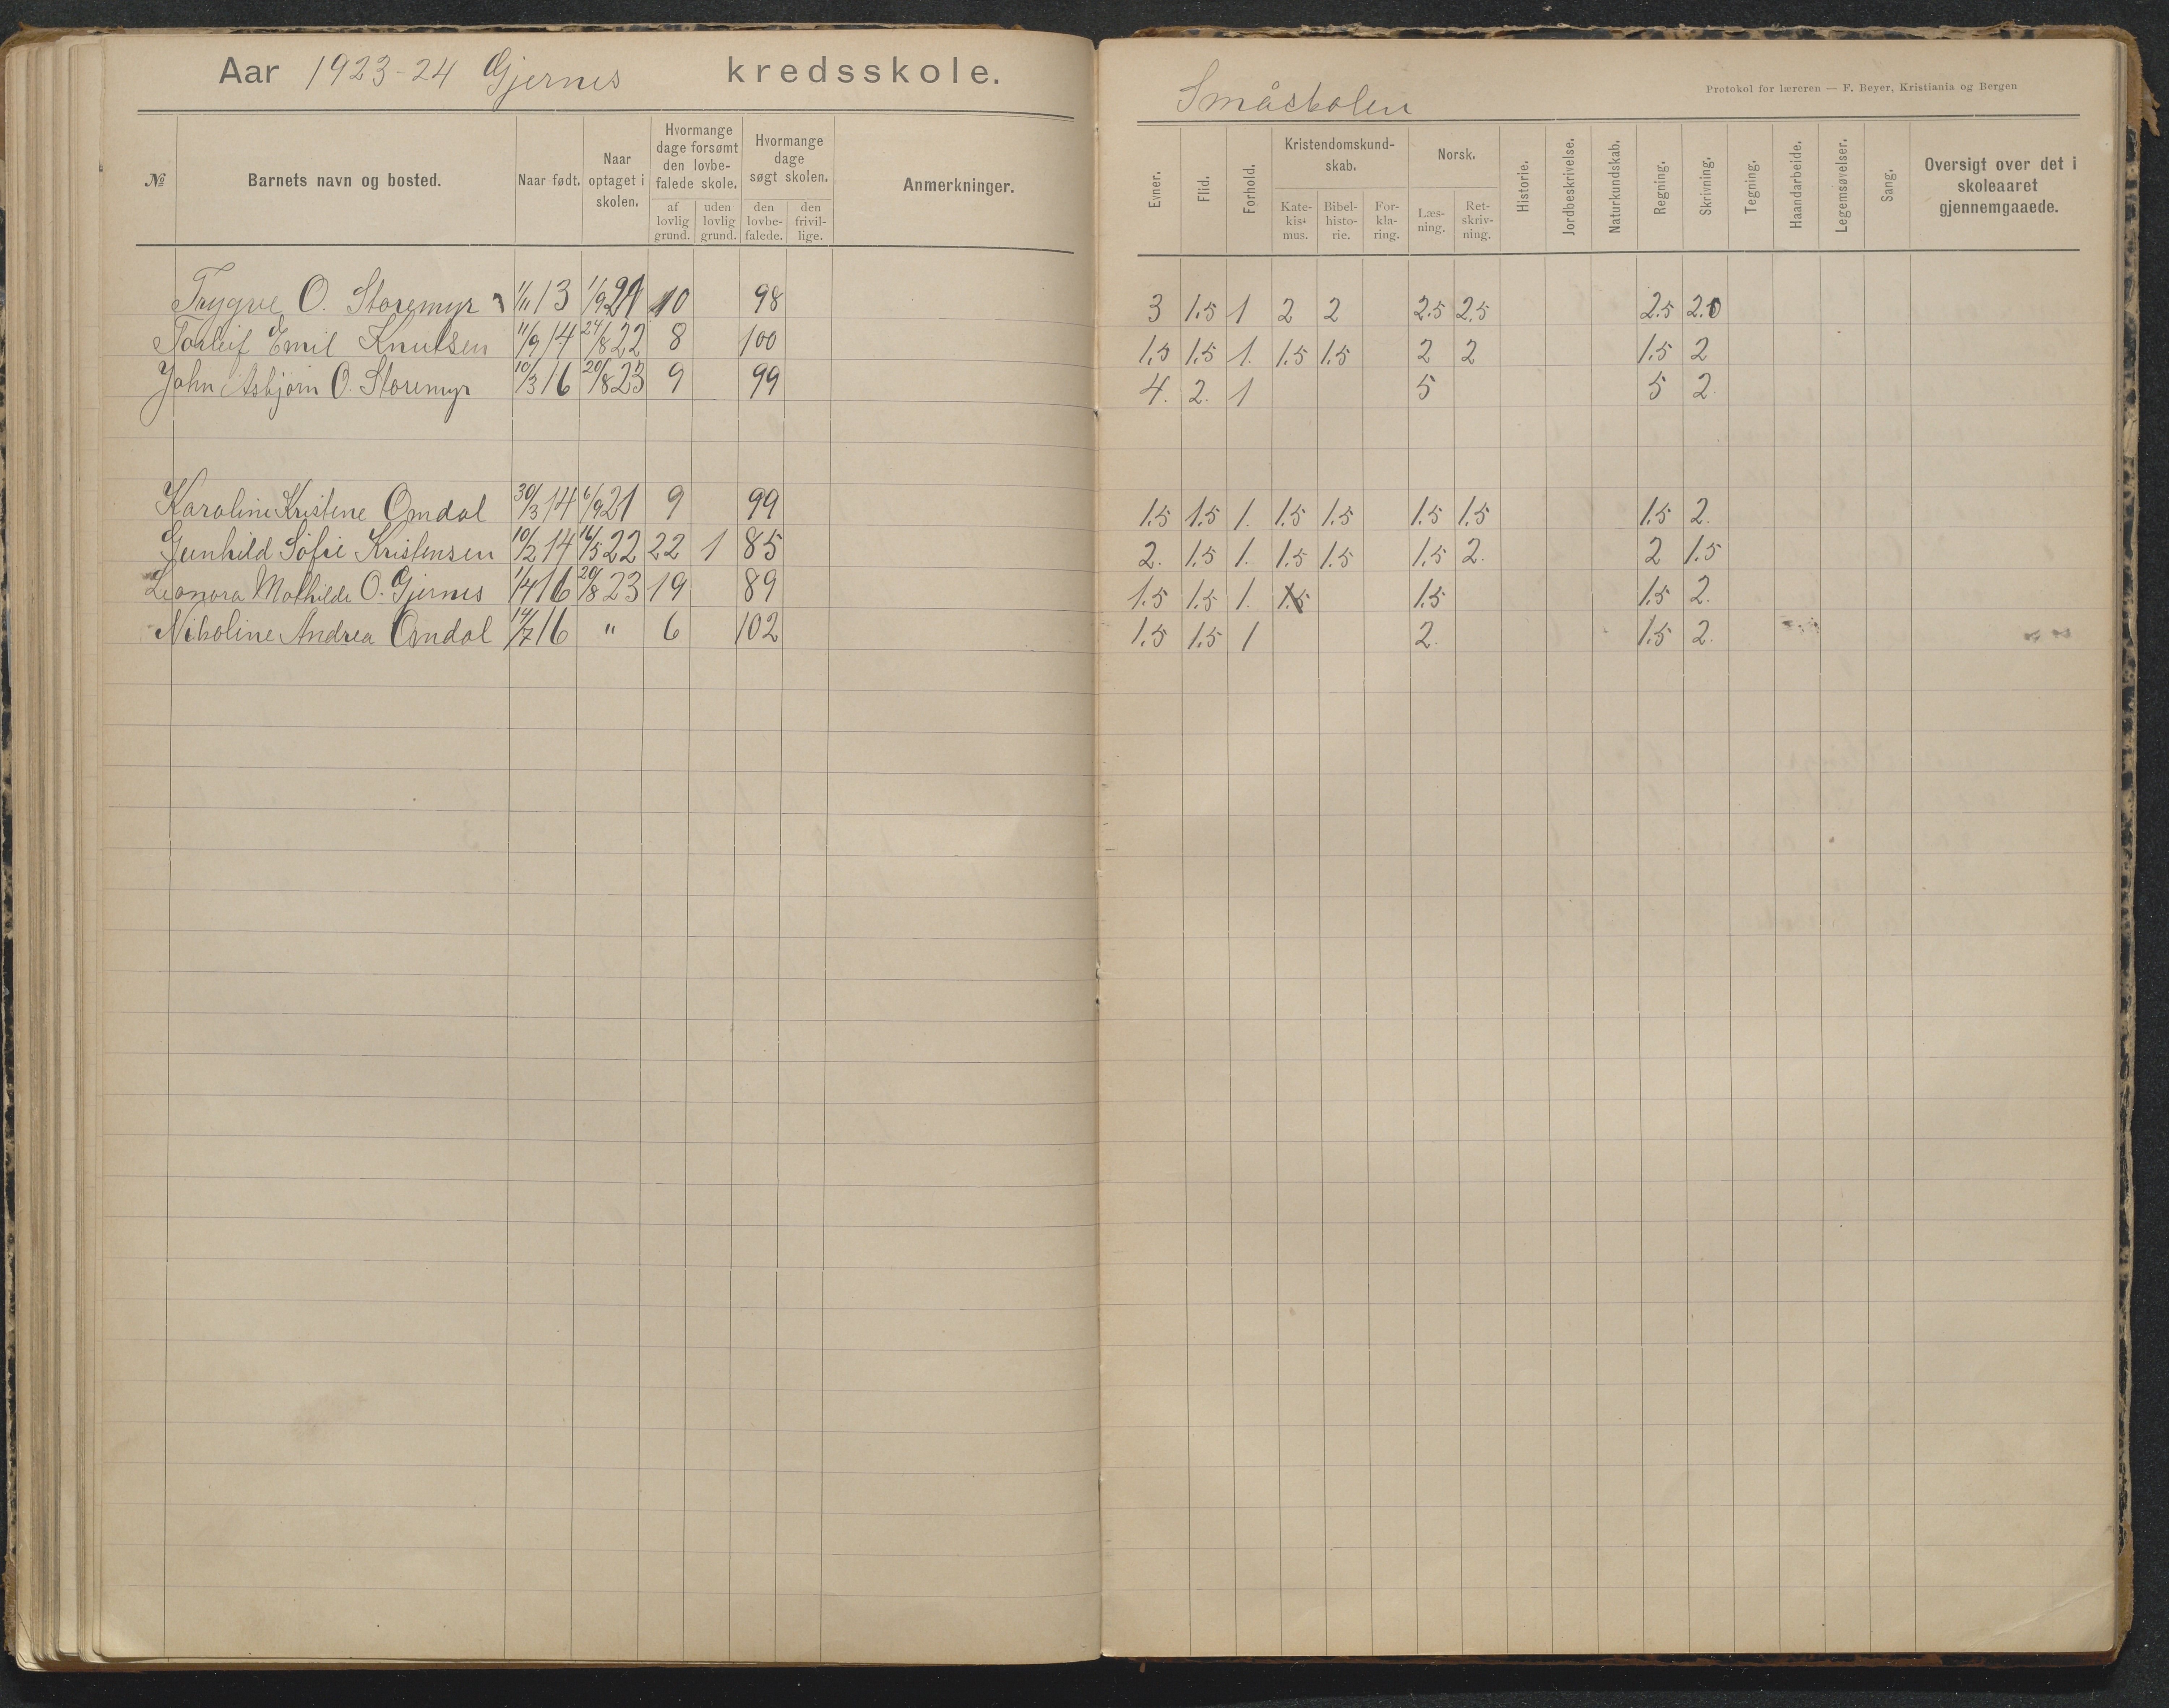 Aar 1923-24 Gjernes kredsskole.
№
Barnets navn og bosted.
Naar født.
Naar optaget i skolen.
Hvormange dage forsømt den lovbefalede skole.
af lovlig grund.
uden lovlig grund.
Hvormange dage søgt skolen.
den lovbefalede.
den frivillige.
Anmerkninger.
Trygve O. Storemyr 1/11 13 1/9 21 10 98
Torleif Emil Knutsen 11/9 14 24/8 22 8 100
John Asbjørn O. Storemyr 10/3 16 20/8 23 9 99
Karoline Kristene Omdal 30/3 14 6/9 21 9 99
Gunhild Sofie Kristensen 10/2 14 16/5 22 22 1 85
Leonora Mathilde O. Gjernes 1/4 16 20/8 23 19 89
Nikoline Andrea Omdal 14/7 16 " 6 102
Småskolen
Protokol for læreren — F. Beyer, Kristiania og Bergen
Evner.
Flid.
Forhold.
Kristendomskundskab.
Katekismus.
Bibelhistorie.
Forklaring.
Norsk.
Læsning.
Retskrivning.
Historie.
Jordbeskrivelse.
Naturkundskab.
Regning.
Skrivning.
Tegning.
Haandarbeide.
Legemsøvelser.
Sang.
Oversigt over det i skoleaaret gjennemgaaede.
3 1.5 1 2 2 2.5 2.5 2.5 2.0
1.5 1.5 1. 1.5 1.5 2 2 1.5 2
4. 2. 1 5 5 2.
1.5 1.5 1. 1.5 1.5 1.5 1.5 1.5 2.
2. 1.5 1. 1.5 1.5 1.5 2. 2 1.5
1.5 1.5 1. 1.5 1.5 1.5 2.
1.5 1.5 1 2. 1.5 2.